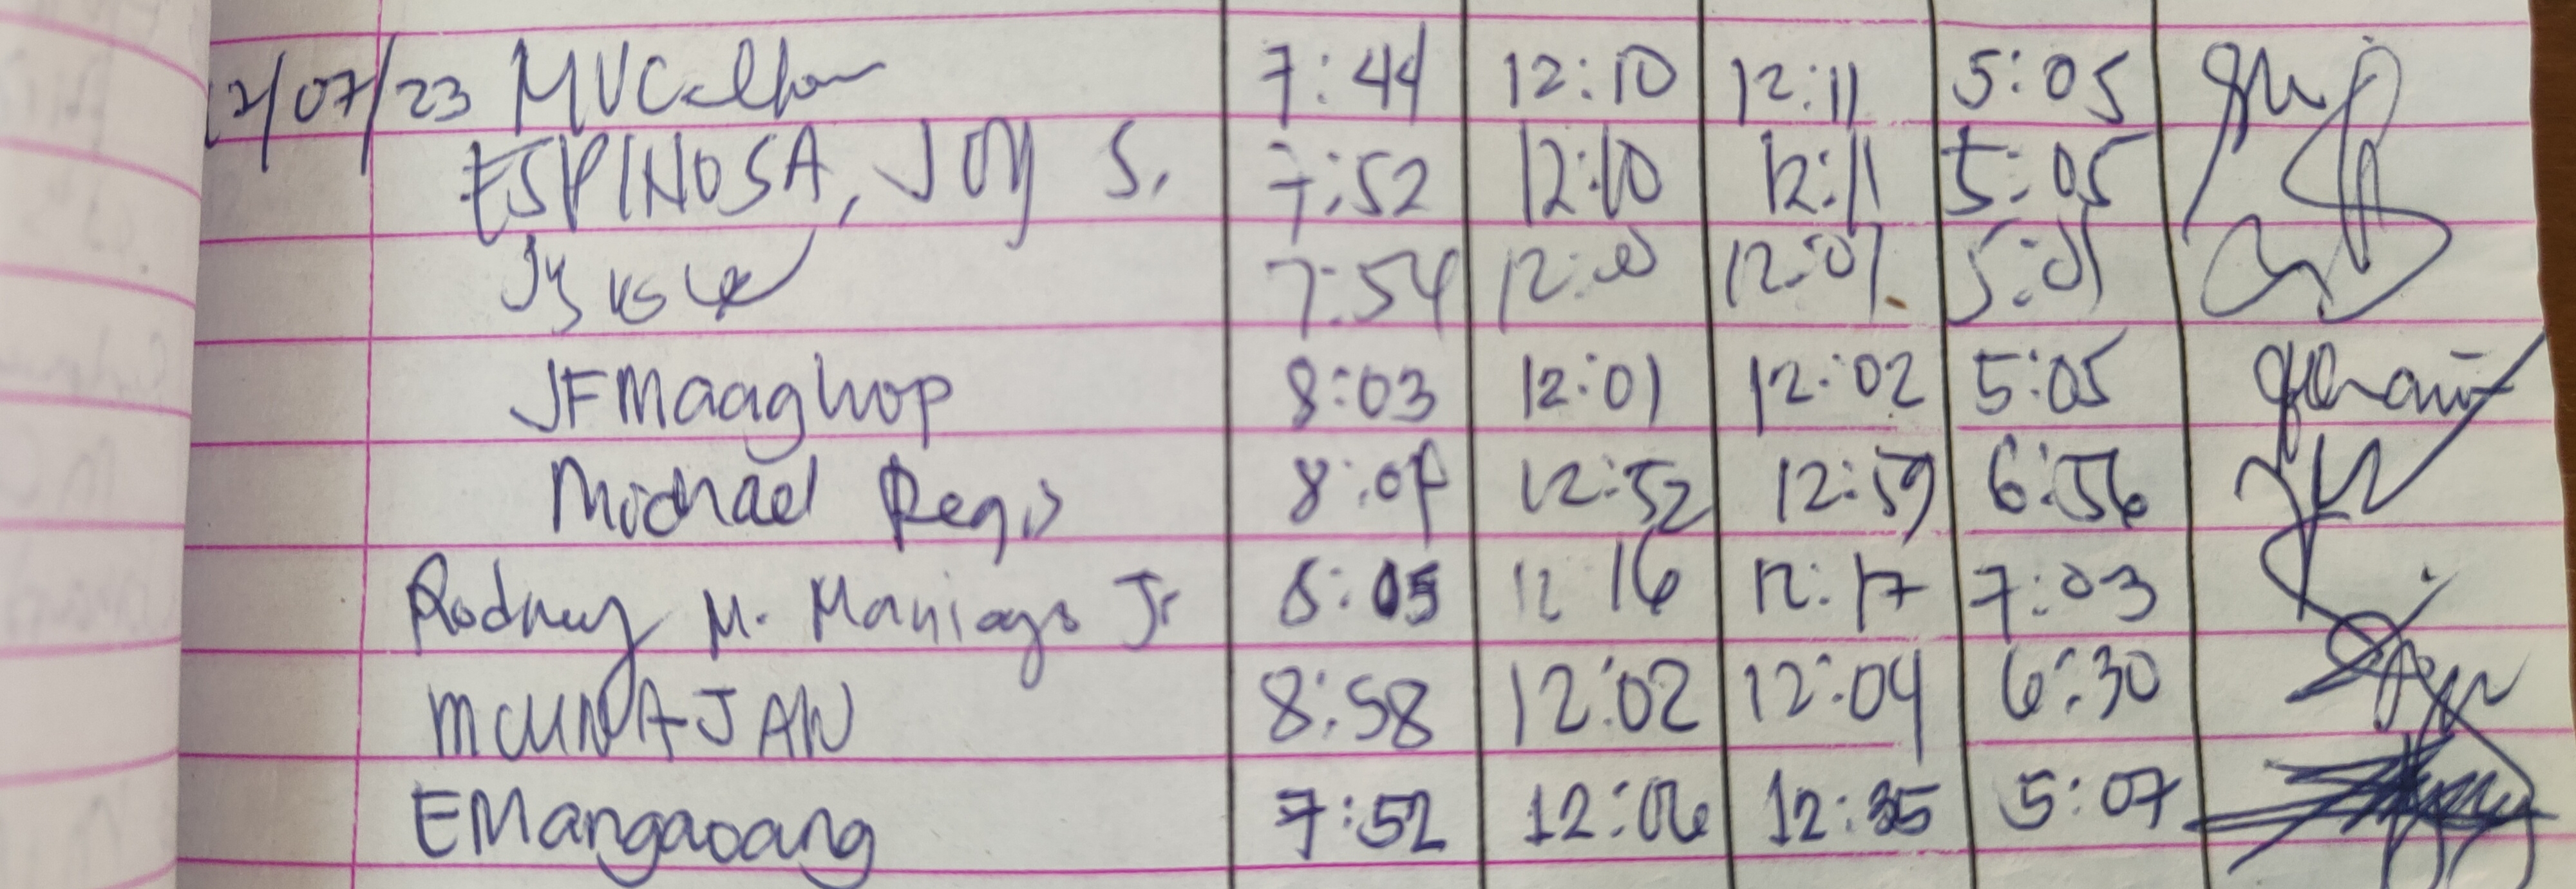 12/07/23 7:44 12:10 12:11 5:05
ESPINOSA, JOY S. 7:52 12:10 12:11 5:05
7:54 12:00 12:01 5:05
JFMaaghop 8:03 12:01 12:02 5:05
Michael Regis 8:04 12:52 12:59 6:56
Rodney M. Maniago Jr 8:05 12 16 12:17 7:03
MCUNAJAN 8:58 12:02 12:04 6:30
EMangaoang 7:52 12:06 12:35 5:07